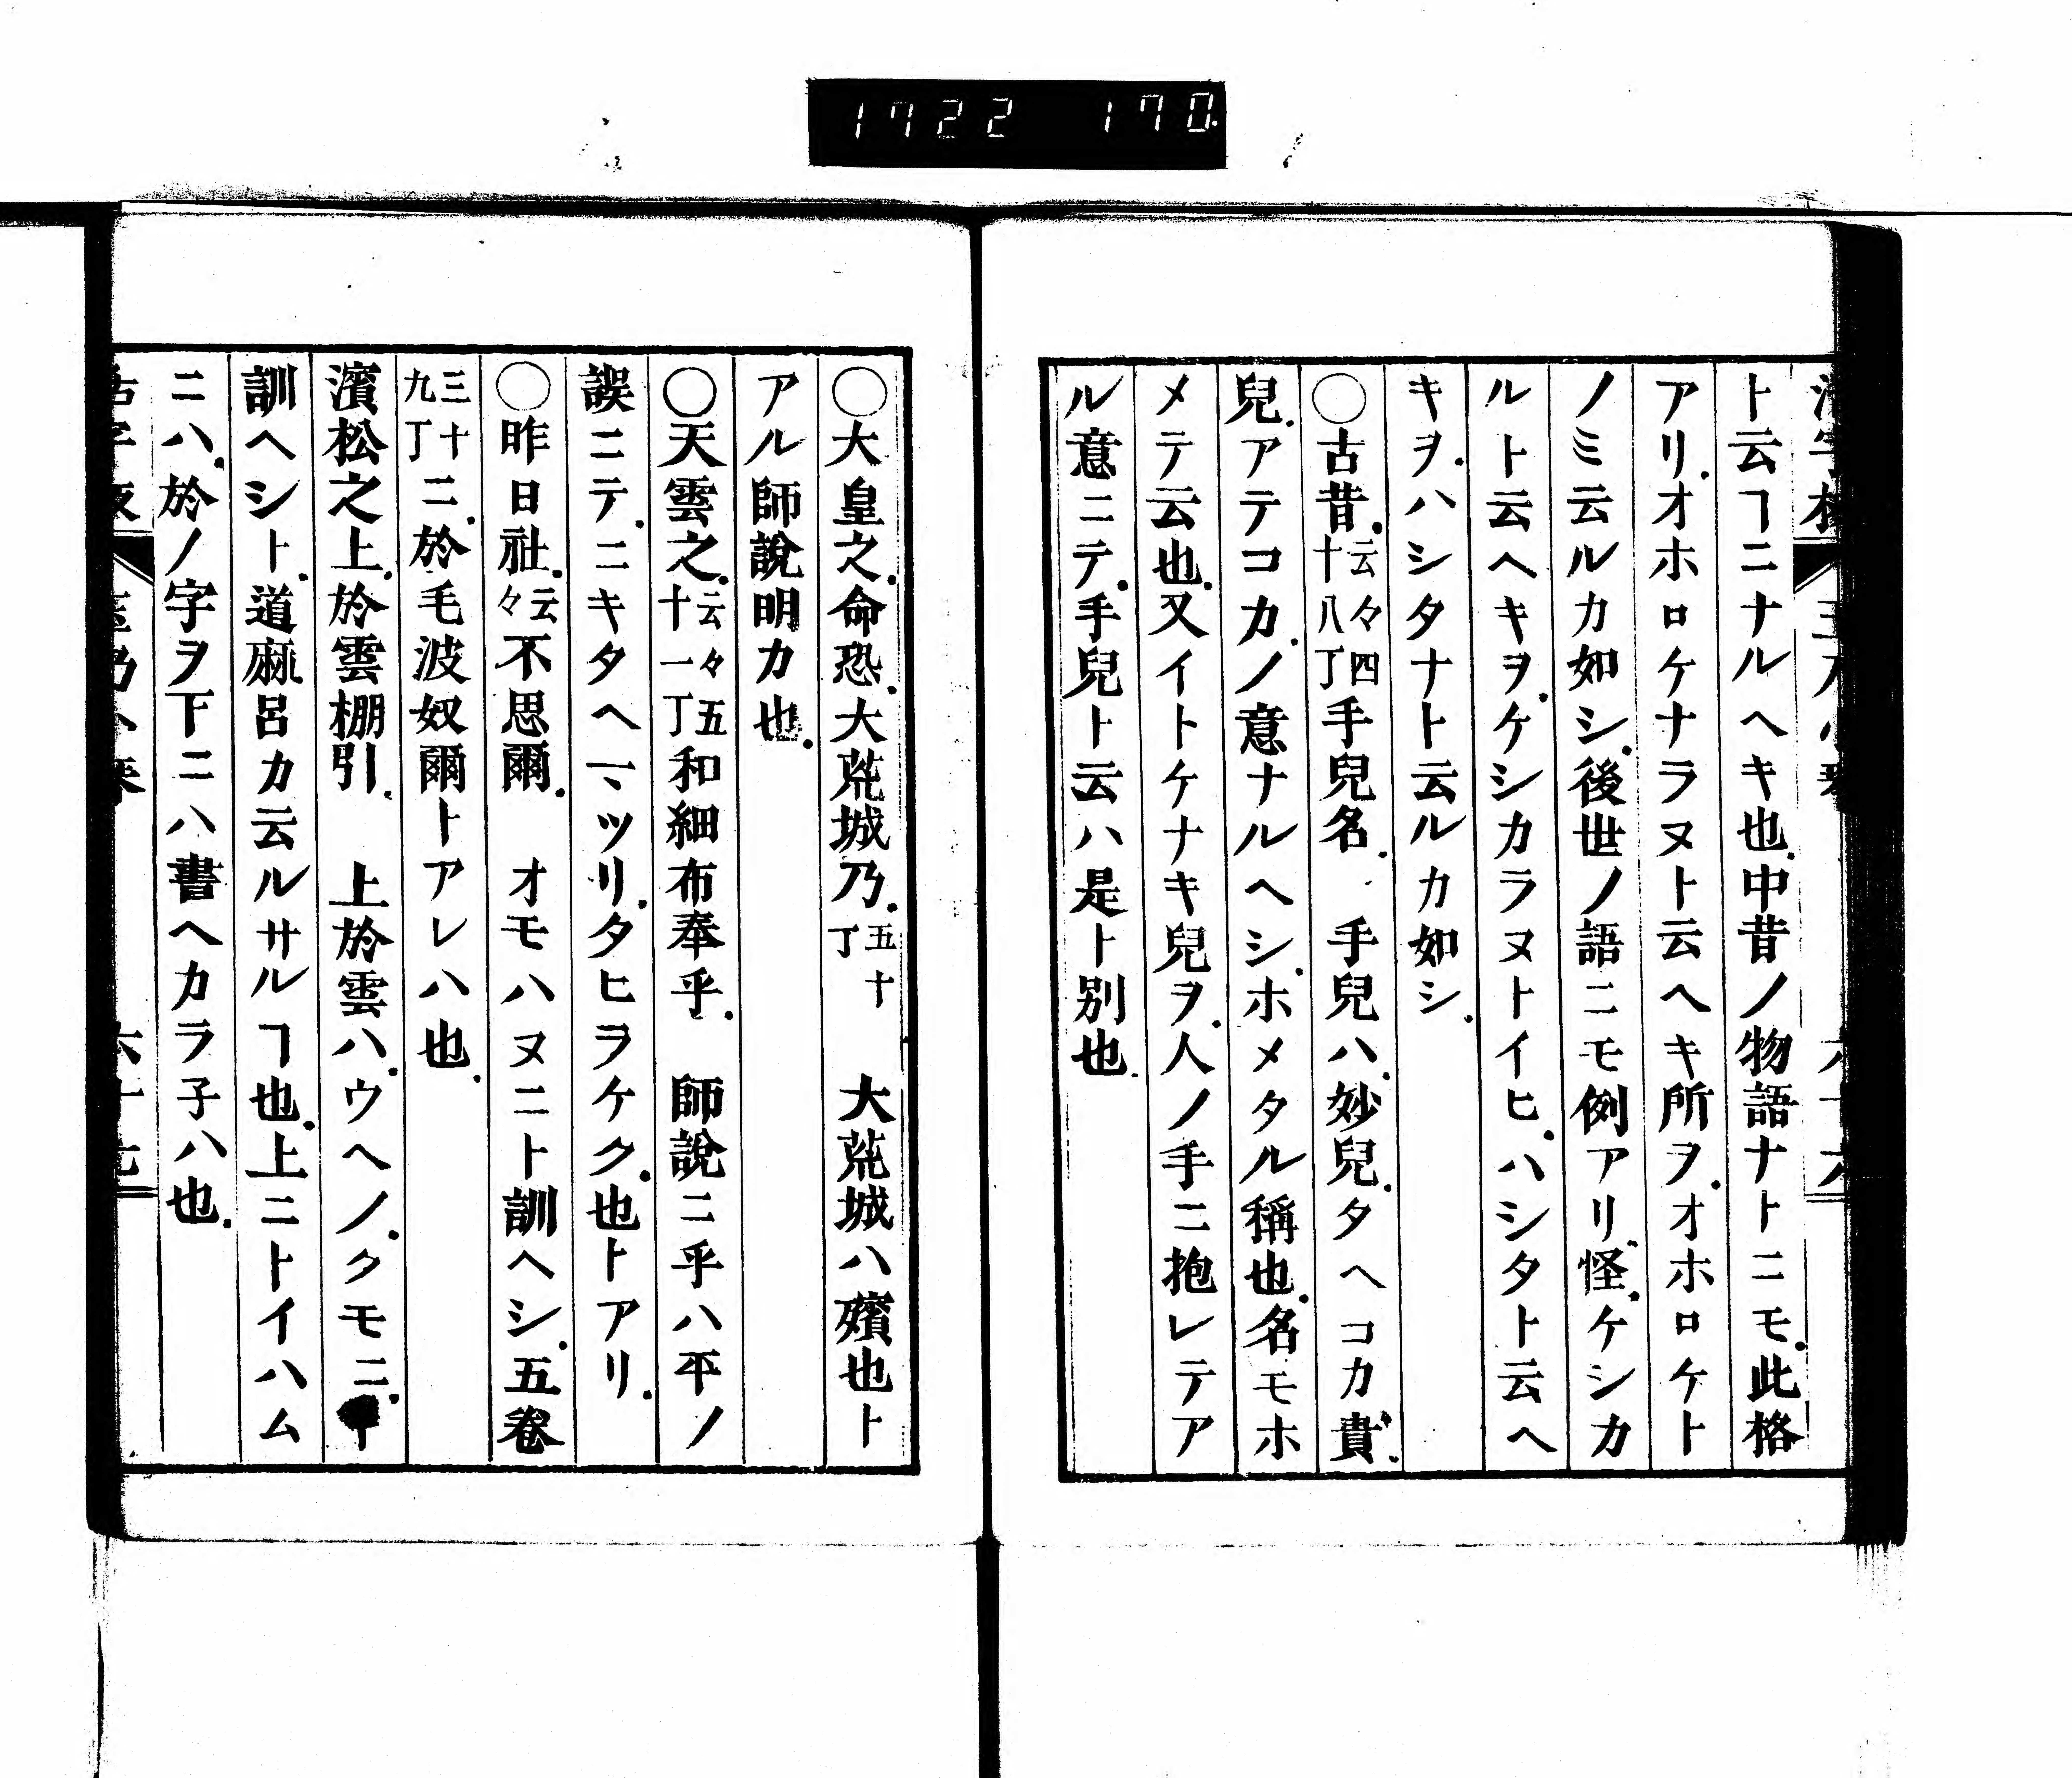 1722 170
ト云ヿニナルヘキ也.中昔ノ物語ナトニモ.此格
アリ.オホロケナラヌト云ヘキ所ヲ.オホロケト
ノミ云ルカ如シ.後世ノ語ニモ例アリ.怪.ケシカ
ルト云ヘキヲ.ケシカラヌトイヒ.ハシタト云ヘ
キヲ.ハシタナト云ルカ如シ.
○古昔.云々四十八丁手兒名.　手兒ハ.妙兒.タヘコカ貴.
兒.アテコカ.ノ意ナルヘシ.ホメタル稱也.名モホ
メテ云也.又イトケナキ兒ヲ.人ノ手ニ抱レテア
ル意ニテ.手兒ト云ハ是ト別也.
○大皇之.命恐.大荒城乃.五十丁　大荒城ハ殯也ト
アル師說明カ也.
○天雲之.云々五十一丁和細布奉乎.　師說ニ乎ハ平ノ
誤ニテ.ニキタヘヽツリ.タヒヲケク.也トアリ.
○昨日社.云々不思爾.　オモハヌニト訓ヘシ.五卷
三十九丁ニ.於毛波奴爾トアレハ也.
濱松之上.於雲棚引.　上於雲ハ.ウヘノ.クモニ.
訓ヘシト.道麻呂カ云ルサルヿ也.上ニトイハム
ニハ.於ノ字ヲ下ニハ書ヘカラ子ハ也.